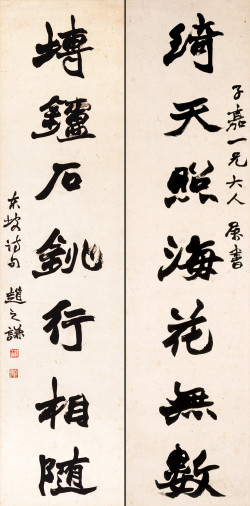 子嘉一兄大人屬書
綺天照海花無數
塼鑪石銚行相隨
東坡詩句 趙之謙